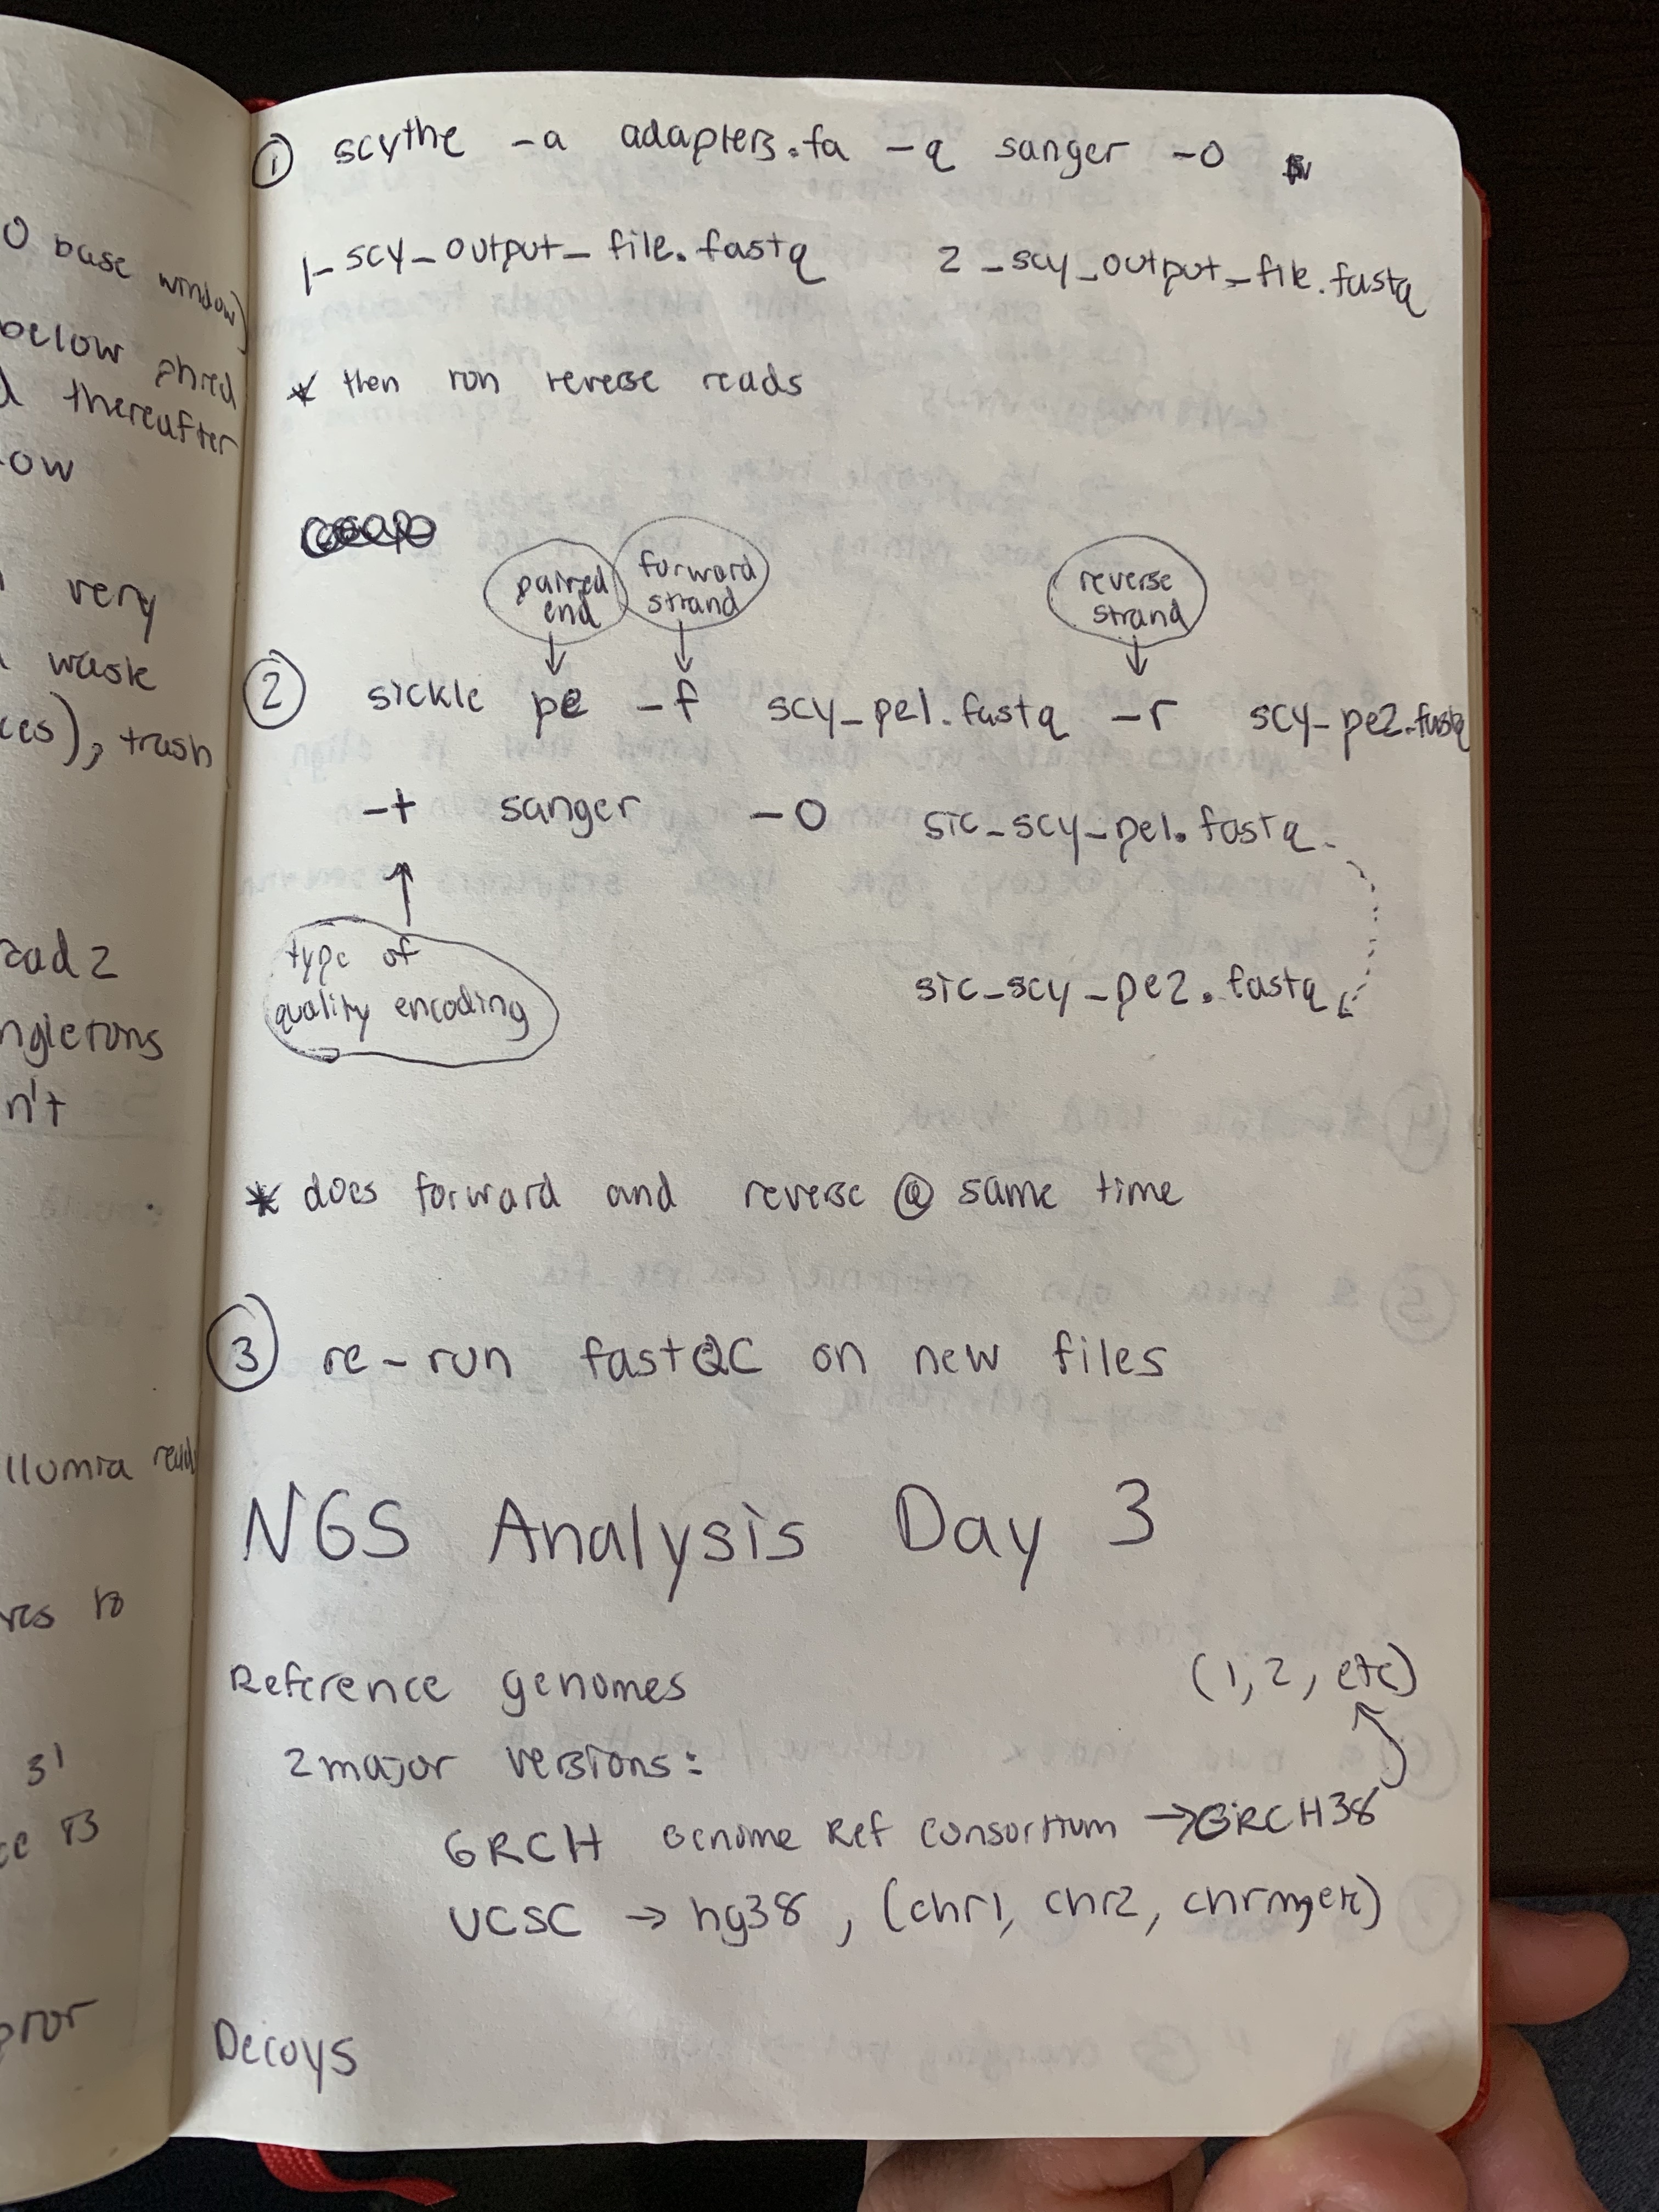 0 base window)
below phred
thereafter
very
wask
ces), trash
ead 2
ngletons
n't
llumia read
res to
3'
① scythe -a adapters.fa -q sanger -o
1_scy_output_file.fastq 2_scy_output_file.fastq
* then run reverse reads
paired end forward strand reverse strand
② sickle pe -f scy_pe1.fastq -r scy_pe2.fastq
-t sanger -o sic_scy_pe1.fastq
type of
quality encoding
sic_scy_pe2.fastq
* does forward and reverse @ same time
③ re-run fastQC on new files
NGS Analysis Day 3
Reference genomes (1, 2, etc)
2 major versions:
GRCH Genome Ref Consortium → GRCH38
UCSC → hg38, (chr1, chr2, chrm, etc)
Decoys